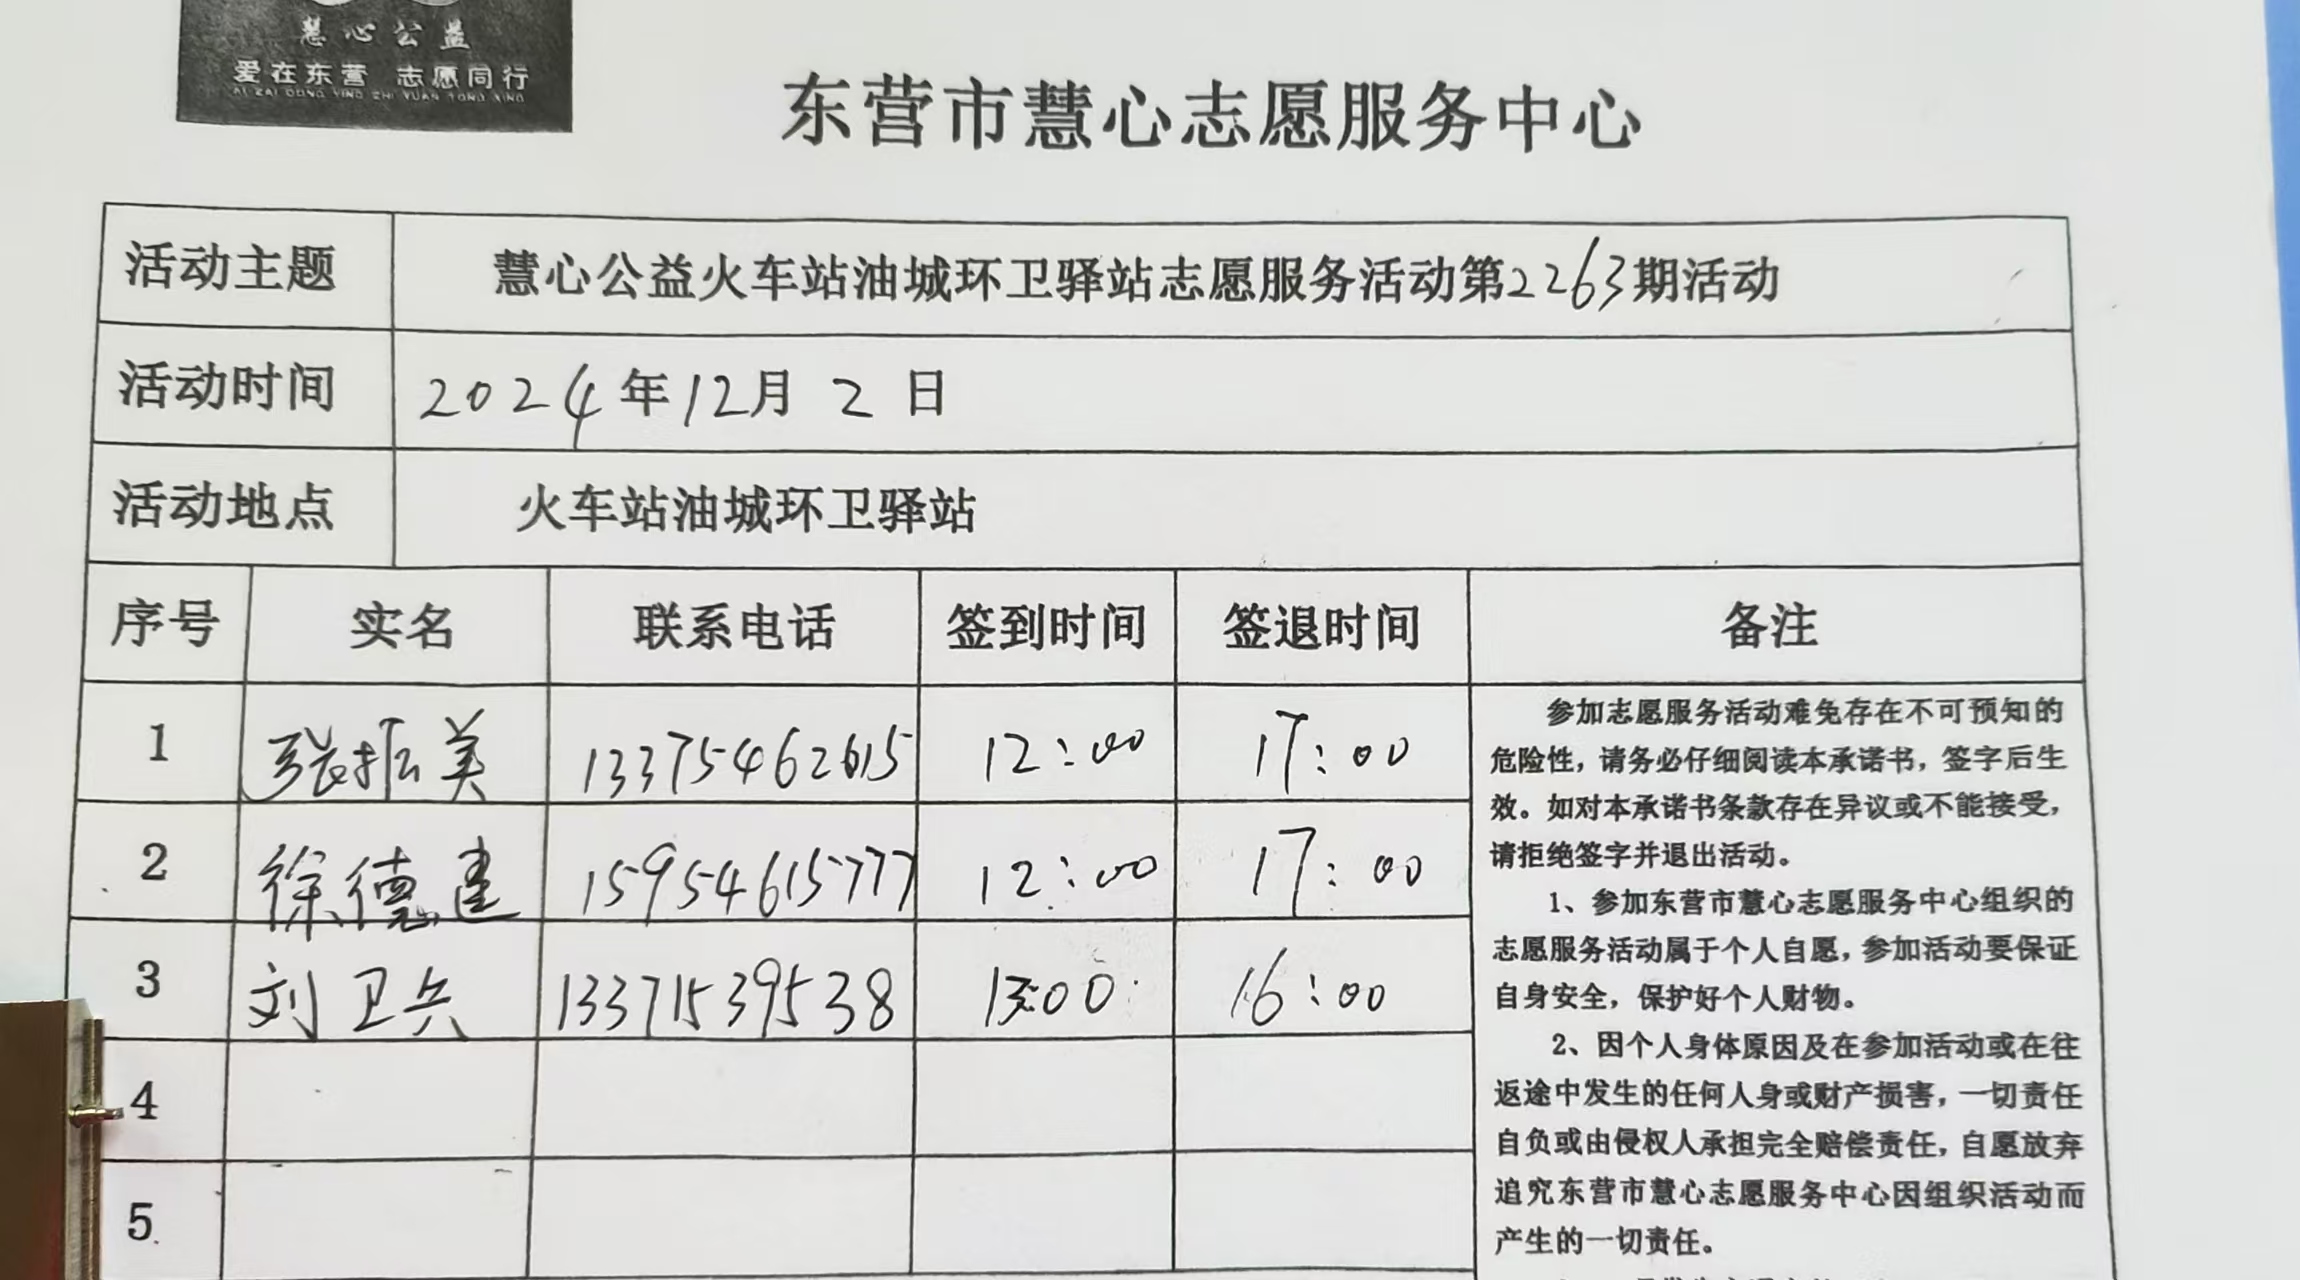 慧心公益
爱在东营 志愿同行
AI ZAI DONG YING ZHI YUAN TONG XING
东营市慧心志愿服务中心
活动主题 慧心公益火车站油城环卫驿站志愿服务活动第2263期活动
活动时间 2024年12月2日
活动地点 火车站油城环卫驿站
序号 实名 联系电话 签到时间 签退时间 备注
1 张振美 13375462615 12:00 17:00
2 徐德建 15954615777 12:00 17:00
3 刘卫兵 13371539538 13:00 16:00
4
5
参加志愿服务活动难免存在不可预知的
危险性，请务必仔细阅读本承诺书，签字后生
效。如对本承诺书条款存在异议或不能接受，
请拒绝签字并退出活动。
1、参加东营市慧心志愿服务中心组织的
志愿服务活动属于个人自愿，参加活动要保证
自身安全，保护好个人财物。
2、因个人身体原因及在参加活动或在往
返途中发生的任何人身或财产损害，一切责任
自负或由侵权人承担完全赔偿责任，自愿放弃
追究东营市慧心志愿服务中心因组织活动而
产生的一切责任。